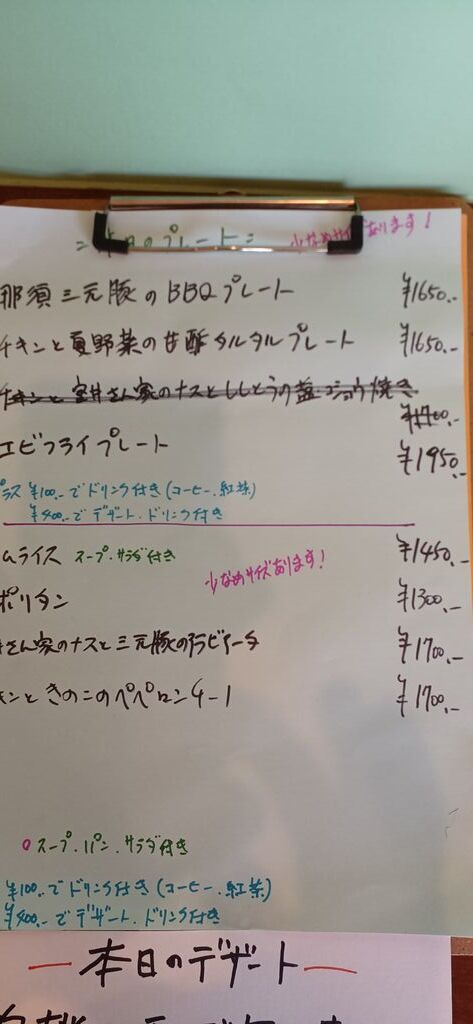 日のプレート= 少なめサイズあります!
那須三元豚のBBQプレート ¥1650.-
チキンと夏野菜の甘酢タルタルプレート ¥1650.-
チキンと室井さん家のナスとししとうの塩コショウ焼き
¥1700.-
エビフライプレート ¥1950.-
プラス ¥100.-でドリンク付き(コーヒー.紅茶)
¥400.-でデザート.ドリンク付き
ムライス スープ・サラダ付き ¥1450.-
少なめサイズあります!
ポリタン ¥1300.-
さん家のナスと三元豚のアラビアータ ¥1700.-
キンときのこのペペロンチーノ ¥1700.-
○スープ.パン.サラダ付き
¥100.-でドリンク付き(コーヒー.紅茶)
¥400.-でデザート.ドリンク付き
—本日のデザート—